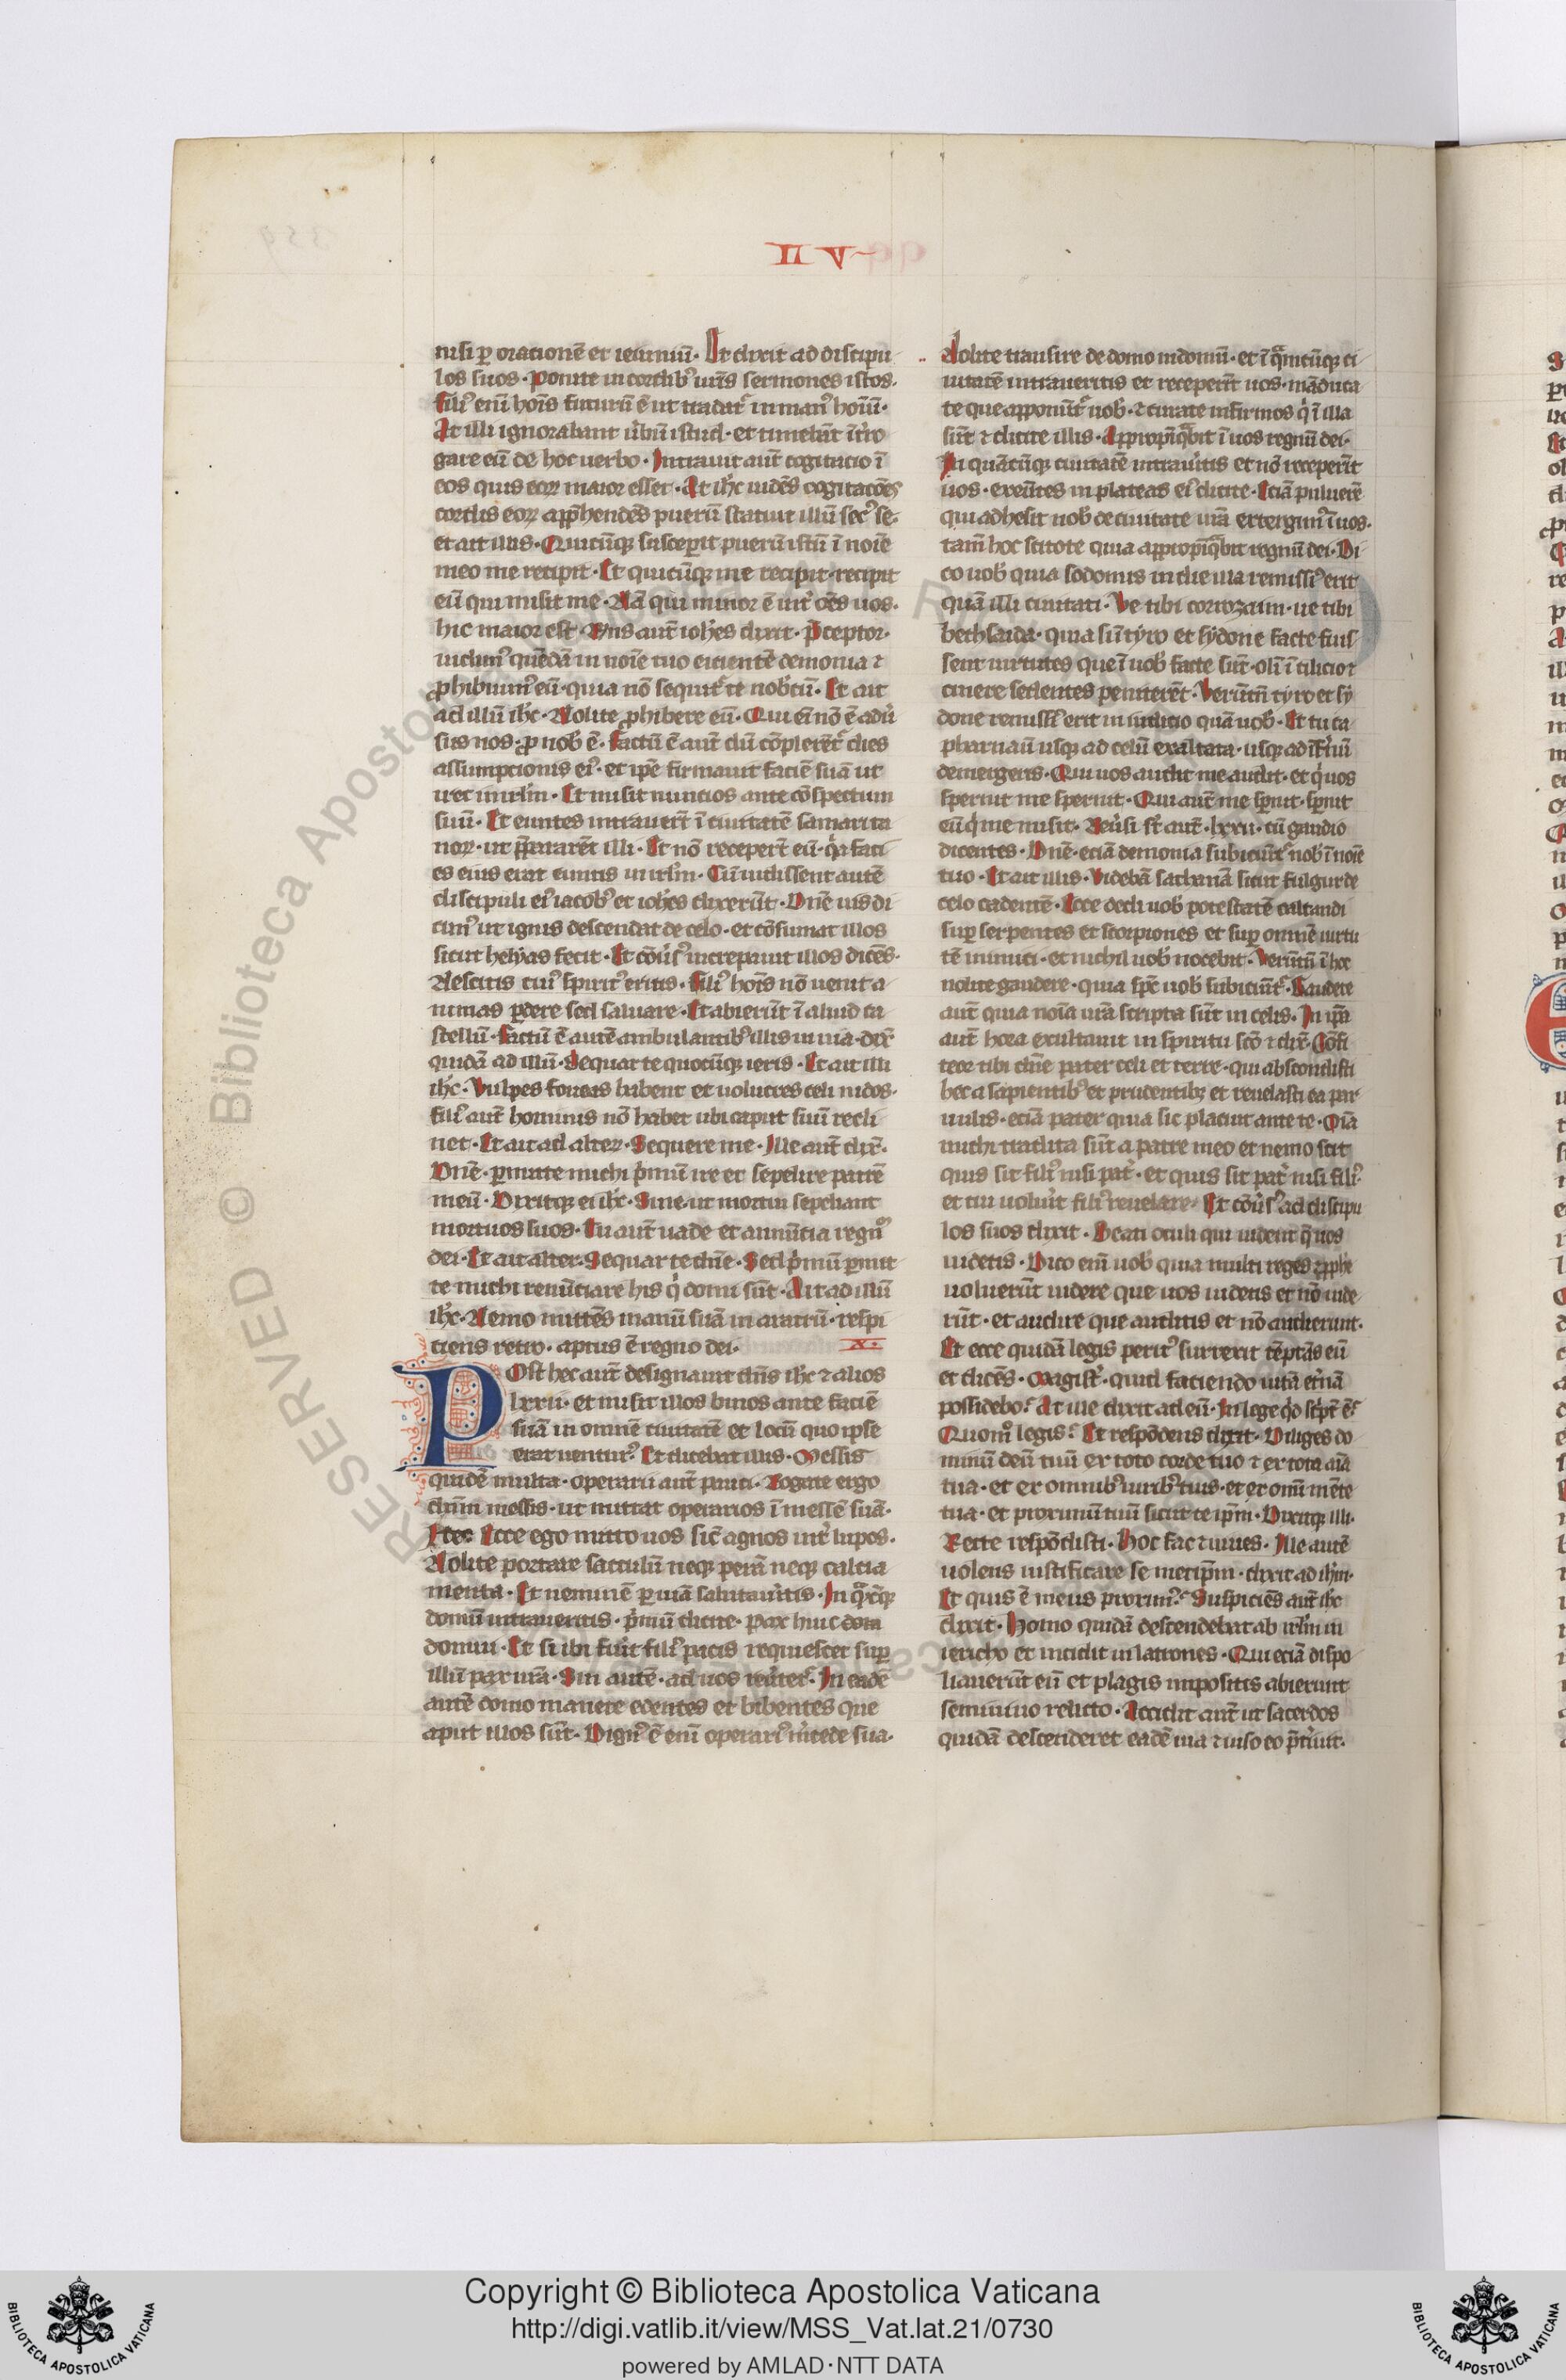 II V
nisi ꝑ orationē et ieiuniū· Et dixit ad discipu
los suos· Ponite in cordib᷒ ur̄is sermones istos·
fili᷒ eni hoīs futurū ē ut tradat᷑ in man᷒ hoīuī·
At illi ignorabant u̓bū istud· et timebāt īt̓ro
gare eū de hoc uerbo· Intrauit aut̄ cogitacio ī
eos quis eoꝝ maior esset· At ih̄c uidēs cogitacōes
cordis eoꝝ app̄hendēs puerū statuit illū sec᷒ se·
et ait illis· Quicūqꝫ suscep̓it puerū istū ī noīe
meo me recipit· Et quicūqꝫ me recipit· recipit
eū qui misit me· Nā qui minor ē int̓ oēs uos·
hic maior est· R̄ns aut̄ ioh̄es dixit· P̄ceptor·
uidim᷒ quēdā in noīe tuo eicientē demonia ⁊
ꝓhibuim᷒ eū· quia nō sequit᷑ te nob̄cū· Et ait
ad illū ih̄c· Nolite ꝓhibere eū· Qui eī nō ē adu̓
sus nos· ꝓ nob̄ ē· Factū ē aut̄ dū cōplerēt᷑ dies
assumptionis ei᷒· et ip̄e firmauit faciē suā ut
iret in irl̄m· Et misit nuncios ante cōspectum
suū· Et euntes intrauer̄t ī ciuitatē samarita
noꝝ· ut p̄pararēt illi· Et nō receper̄t eū· q̓a faci
es eius erat euntis in irl̄m· Cū uidissent autē
discipuli ei᷒ iacob᷒ et ioh̄es dixerūt· Dn̄e uis di
cim᷒ ut ignis descendat de celo· et cōsumat illos
sicut helyas fecit· Et cōu̓s᷒ increpauit illos dicēs·
Nescitis cui᷒ spirit᷒ estis· Fili᷒ hoīs nō uenit a
nimas ꝑdere sed saluare· Et abierūt ī aliud ca
stellū· Factū ē autē ambulantib᷒ illis in uia· dix̄
quidā ad illū· Sequar te quocūqꝫ ieris· Et ait illi
ih̄c· Vulpes foueas habent et uolucres celi nidos·
fili᷒ aut̄ hominis nō habet ubi caput suū recli
net· Et ait ad alterꝝ· Sequere me· Ille aut̄ dix̄·
Dn̄e· ꝑmitte michi p̓mū ire et sepelire patrē
meū· Dixitqꝫ ei ih̄c· Sine ut mortui sepeliant
mortuos suos· Tu aut̄ uade et annūcia regnū
dei· Et ait alter· Sequar te dn̄e· Sed p̓mū ꝑmit
te michi renūciare his q̓ domi sūt· Ait ad illū
ih̄c· Nemo mittēs manū suā in aratrū· respi
ciens retro· aptus ē regno dei·
X·
POst hec aut̄ designauit dn̄s ih̄c ⁊ alios
lxxii· et misit illos binos ante faciē
suā in omnē ciuitatē et locū quo ipse
erat uentur᷒· Et dicebat illis· Messis
quidē multa· operarii aut̄ pauci· Rogate ergo
dn̄m messis· ut mittat operarios ī messē suā·
Ecce ego mitto uos sic̄ agnos int̓ lupos·
Nolite portare sacculū neqꝫ perā neqꝫ calcia
menta· Et neminē ꝑ uiā salutau̓itis· In q̄cūqꝫ
domū intraueritis· p̓mū dicite· Pax huic dom
domui· Et si ibi fu̓it fili᷒ pacis requiescet suꝑ
illū pax ur̄a· Sin autē· ad uos reu̓tet᷑· In eadē
autē domo manete edentes et bibentes que
aput illos sūt· Dign᷒ ē enī operari᷒ m̓cede sua·
Nolite transire de domo in domū· et ī q̄mcūqꝫ ci
uitatē intraueritis et receperīt uos· māduca
te que apponūt᷑ uob̄· ⁊ curate infirmos q̓ ī illa
sūt ⁊ dicite illis· Appropīq̄bit ī uos regnū dei·
In quācūqꝫ ciuitatē intrau̓itis et nō receperīt
uos· exeūtes in plateas ei᷒ dicite· Eciā puluerē
qui adhesit nob̄ de ciuitate ur̄a extergim᷒ ī uos·
tam̄ hoc scitote quia appropīq̄bit regnū dei· Di
co uob̄ quia sodomis in die illa remissi᷒ erit
quā illi ciuitati· Ve tibi corozaim· ue tibi
bethsaida· quia si ī tyro et sydone facte fuis
sent uirtutes que ī uob̄ facte sūt· olī ī cilicio ⁊
cinere sedentes peniterēt· Verūtn̄ tyro et sy
done remissi᷒ erit in iudicio quā uob̄· Et tu ca
pharnaū usqꝫ ad celū exaltata· usqꝫ ad īf̓nū
demergeris· Qui uos audit me audit· et q̓ uos
spernit me spernit· Qui aut̄ me sp̄nit· sp̄nit
eū q̓ me misit· Reu̓si st̄ aut̄· lxxii· cū gaudio
dicentes· Dn̄e· eciā demonia subiciūt᷑ nob̄ ī noīe
tuo· Et ait illis· Videbā sathanā sicut fulgur de
celo cadentē· Ecce dedi uob̄ potestatē calcandi
suꝑ serpentes et scorpiones et suꝑ omnē uirtu
tē inimici· et nichil uob̄ nocebit· Verūtn̄ ī hoc
nolite gaudere· quia sp̄c uob̄ subiciūt᷑· Gaudete
aut̄ quia noīa ur̄a scripta sūt in celis· In ip̄a
aut̄ hora exultauit in spiritu sc̄o ⁊ dix̄· Cōfi
teor tibi dn̄e pater celi et terre· qui abscondisti
hec a sapientib᷒ et prudentibꝫ et reuelasti ea par
uulis· eciā pater quia sic placuit ante te· Oīa
michi tradita sūt a patre meo et nemo scit
quis sit fili᷒ nisi pat̓· et quis sit pat̓ nisi fili᷒·
et cui uolu̓it fili᷒ reuelare· Et cōu̓s᷒ ad discipu
los suos dixit· Beati oculi qui uident q̄ uos
uidetis· Dico enī uob̄ quia multi reges ⁊ ꝓph̄e
uoluerūt uidere que uos uidetis et nō uide
rūt· et audire que auditis et nō audierunt·
Et ecce quidā legis perit᷒ surrexit tēptās eū
et dicēs· Magist̓· quid faciendo uitā et̓nā
possidebo? At ille dixit ad eū· In lege q̓d sc̓pt̄ ē?
Quom̊ legis? Et respōdens dixit· Diliges do
minū deū tuū ex toto corde tuo ⁊ ex tota aīa
tua· et ex omnib᷒ uirib᷒ tuis· et ex omī mēte
tua· et proximū tuū sicut te ip̄m· Dixitqꝫ illi·
Recte respōdisti· Hoc fac ⁊ uiues· Ille autē
uolens iustificare se metip̄m· dixit ad ih̄m·
Et quis ē meus proxim᷒? Suspiciēs aut̄ ih̄c
dixit· Homo quidā descendebat ab irl̄m in
iericho et incidit in latrones· Qui eciā dispo
liauerūt eū et plagis impositis abierunt
semiuiuo relicto· Accidit aut̄ ut sacerdos
quidā descenderet eadē uia ⁊ uiso eo p̄t̓iuit·
RESERVED © Biblioteca Apostolica Vaticana
Copyright © Biblioteca Apostolica Vaticana
http://digi.vatlib.it/view/MSS_Vat.lat.21/0730
powered by AMLAD·NTT DATA
BIBLIOTECA APOSTOLICA VATICANA
BIBLIOTECA APOSTOLICA VATICANA